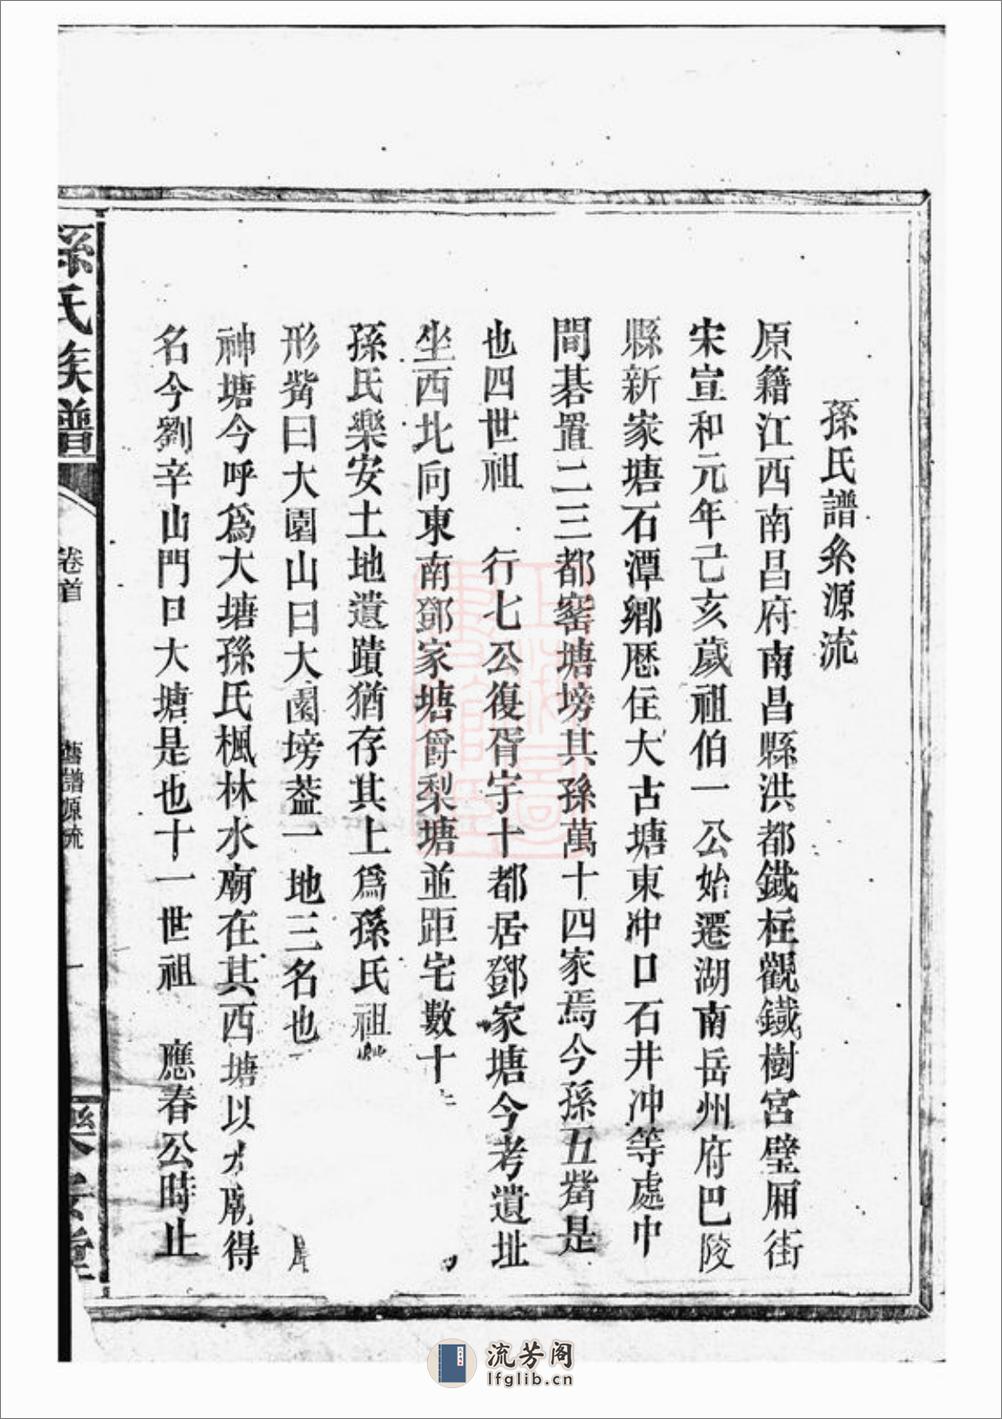 孫氏譜系源流
原籍江西南昌府南昌縣洪都鐵柱觀鐵樹宮壁廂街
宋宣和元年己亥歲祖伯一公始遷湖南岳州府巴陵
縣新家塘石潭鄉歷住大古塘東冲口石井冲等處中
間碁置二三都窰塘塝其孫萬十四家焉今孫五觜是
也四世祖　行七公復胥宇十都居鄧家塘今考遺址
坐西北向東南鄧家塘爵梨塘並距宅數十
孫氏樂安土地遺蹟猶存其上爲孫氏祖
形觜曰大園山曰大園塝葢一地三名也
神塘今呼爲大塘孫氏楓林水廟在其西塘以水廟得
名今劉辛山門曰大塘是也十一世祖　應春公時止
孫氏族譜
卷首
舊譜源流
一
樂安堂
流芳阁
lfglib.cn